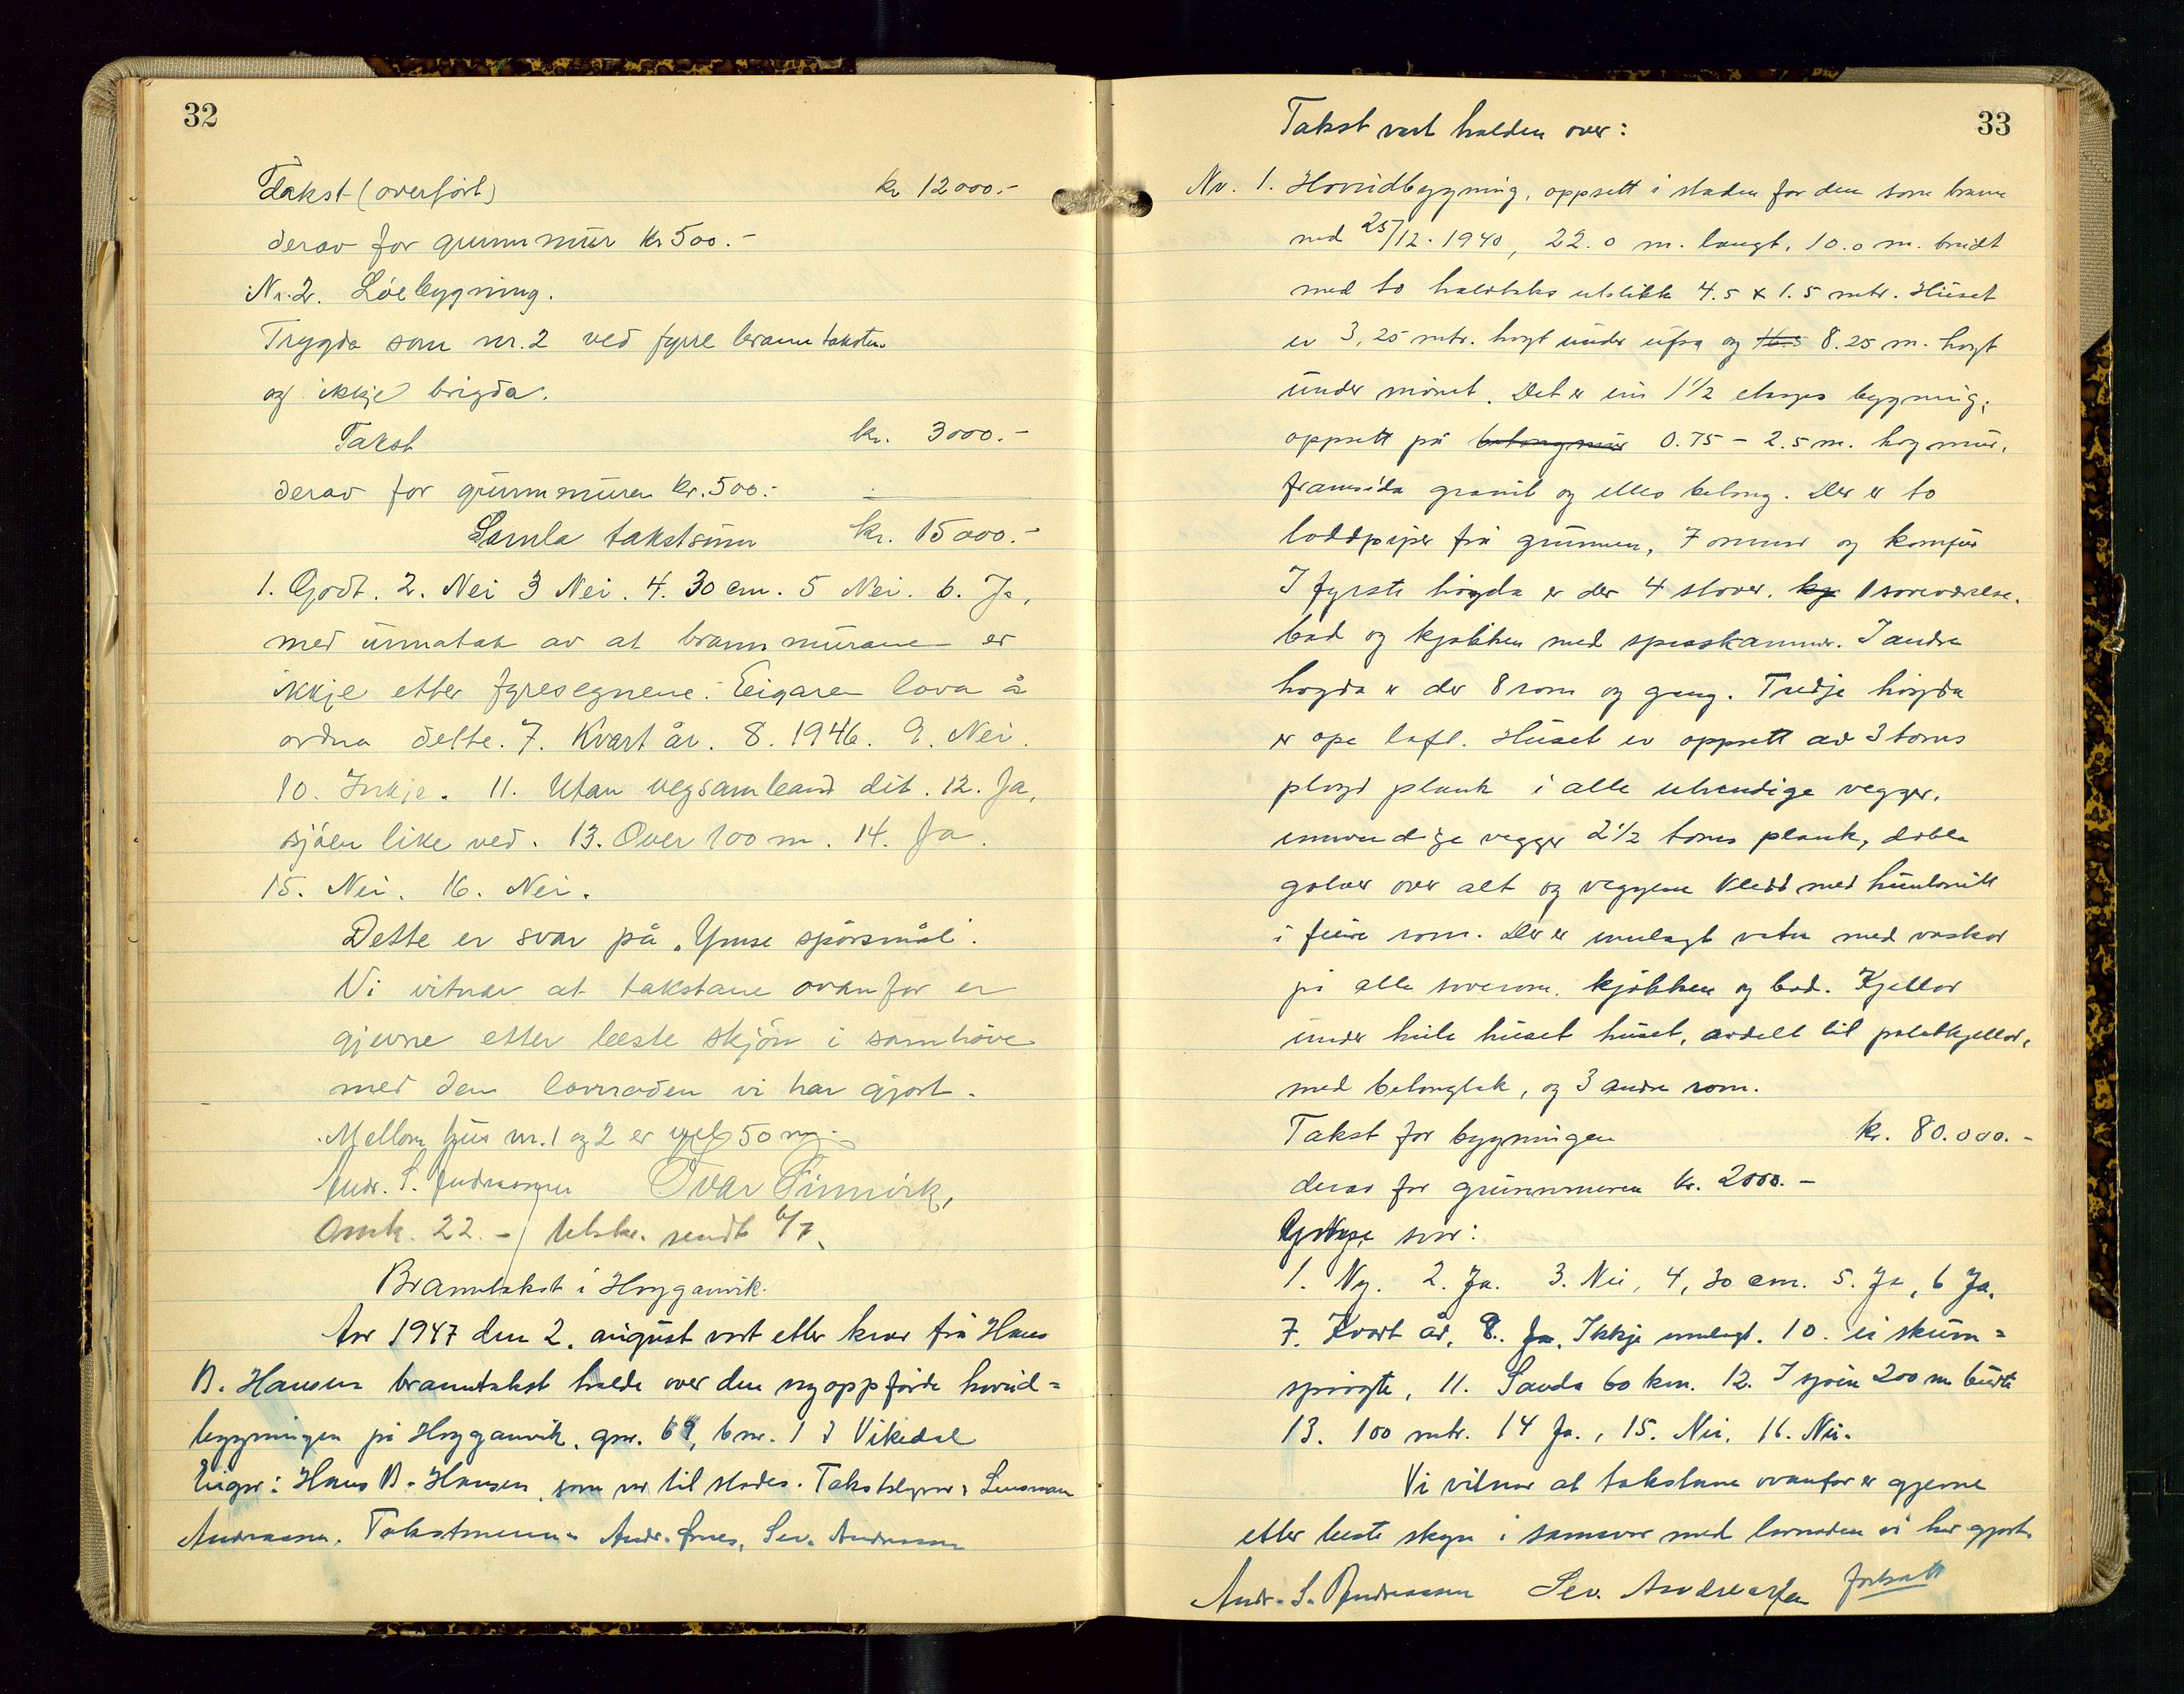 32
Takst (overført) kr 12000.-
derav for grunnmur kr 500.-
Nr. 2. Löebygning.
Trygda som nr. 2 ved fyrre branntaksten
og ikkje brigda.
Takst kr. 3000.-
derav for grunnmuren kr. 500.-
Samla takstsum kr. 15000.-
1. Godt. 2. Nei 3 Nei. 4. 30 cm. 5 Nei. 6. Ja,
med unnatak av at brannmurane er
ikkje etter fyresegnene. Eigaren lova å
ordna dette. 7. Kvart år. 8. 1946. 9. Nei.
10. Inkje. 11. Utan vegsamband dit. 12. Ja,
sjøen like ved. 13. Over 100 m. 14. Ja.
15. Nei. 16. Nei.
Dette er svar på "Ymse spörsmål".
Vi vitnar at takstane ovanfor er
gjevne etter beste skjön i samhöve
med den lovnaden vi har gjort.
Mellom hus nr. 1 og 2 er vel 50 m.
Andr. S. Andreassen Ivar Finnvik,
Omk. 22.- / Utskr. sendt 6/7.
Branntakst i Hogganvik.
Aar 1947 den 2. august vart etter krav frå Hans
B. Hansen branntakst halde over den nyoppförde hovud=
bygningen på Hogganvik, gnr. 69, bnr. 1 i Vikedal
Eigar: Hans B. Hansen, som var til stades. Takststyrar: Lensmann
Andreassen. Takstmenn: Andr. Sev. Andreassen
33
Takst vart halden over:
Nr. 1. Hovudbygning, oppsett i staden for den som brann
ned 25/12. 1940, 22.0 m. langt, 10.0 m. breidt
med to halvtaks utstikk 4.5 x 1.5 mtr. Huset
er 3,25 mtr. högt under ufsa og 8.25 m. högt
under mönet. Det er ein 1 1/2 etasjes bygning,
oppsett på betongmur 0.75 - 2.5 m. hög mur,
framsida granit og elles betong. Der er to
loddpiper frå grunnen, 7 omnar og komfur
I fyrste högda er der 4 stover, 1 soveværelse,
bad og kjökken med spiskammer. I andre
högda er der 8 rom og gang. Tredje högda
er ope loft. Huset er oppsett av 3 toms
plogd plank i alle utvendige vegger,
innvendige vegger 2 1/2 toms plank, doble
golver over alt og veggene kledd med huntonitt
i fleire rom. Der er innlagt vatn med vaskar
på alle soverom, kjökken og bad. Kjellar
under heile huset huset, avdelt til potetkjellar,
med betongtak, og 3 andre rom.
Takst for bygningen kr. 80.000.-
derav for grunnmuren kr. 2000.-
svar:
1. Ny. 2. Ja. 3. Nei, 4, 30 cm. 5. Ja, 6 Ja.
7. Kvart år, 8. Ja. Ikkje innlagt. 10. ei skum=
spröyte, 11. Sauda 60 km. 12. I sjöen 200 m burte
13. 100 mtr. 14 Ja., 15. Nei. 16. Nei.
Vi vitnar at takstane ovanfor er gjevne
etter beste skyn i samsvar med lovnaden vi har gjort.
Andr. S. Andreassen Sev. Andreassen fortsatt